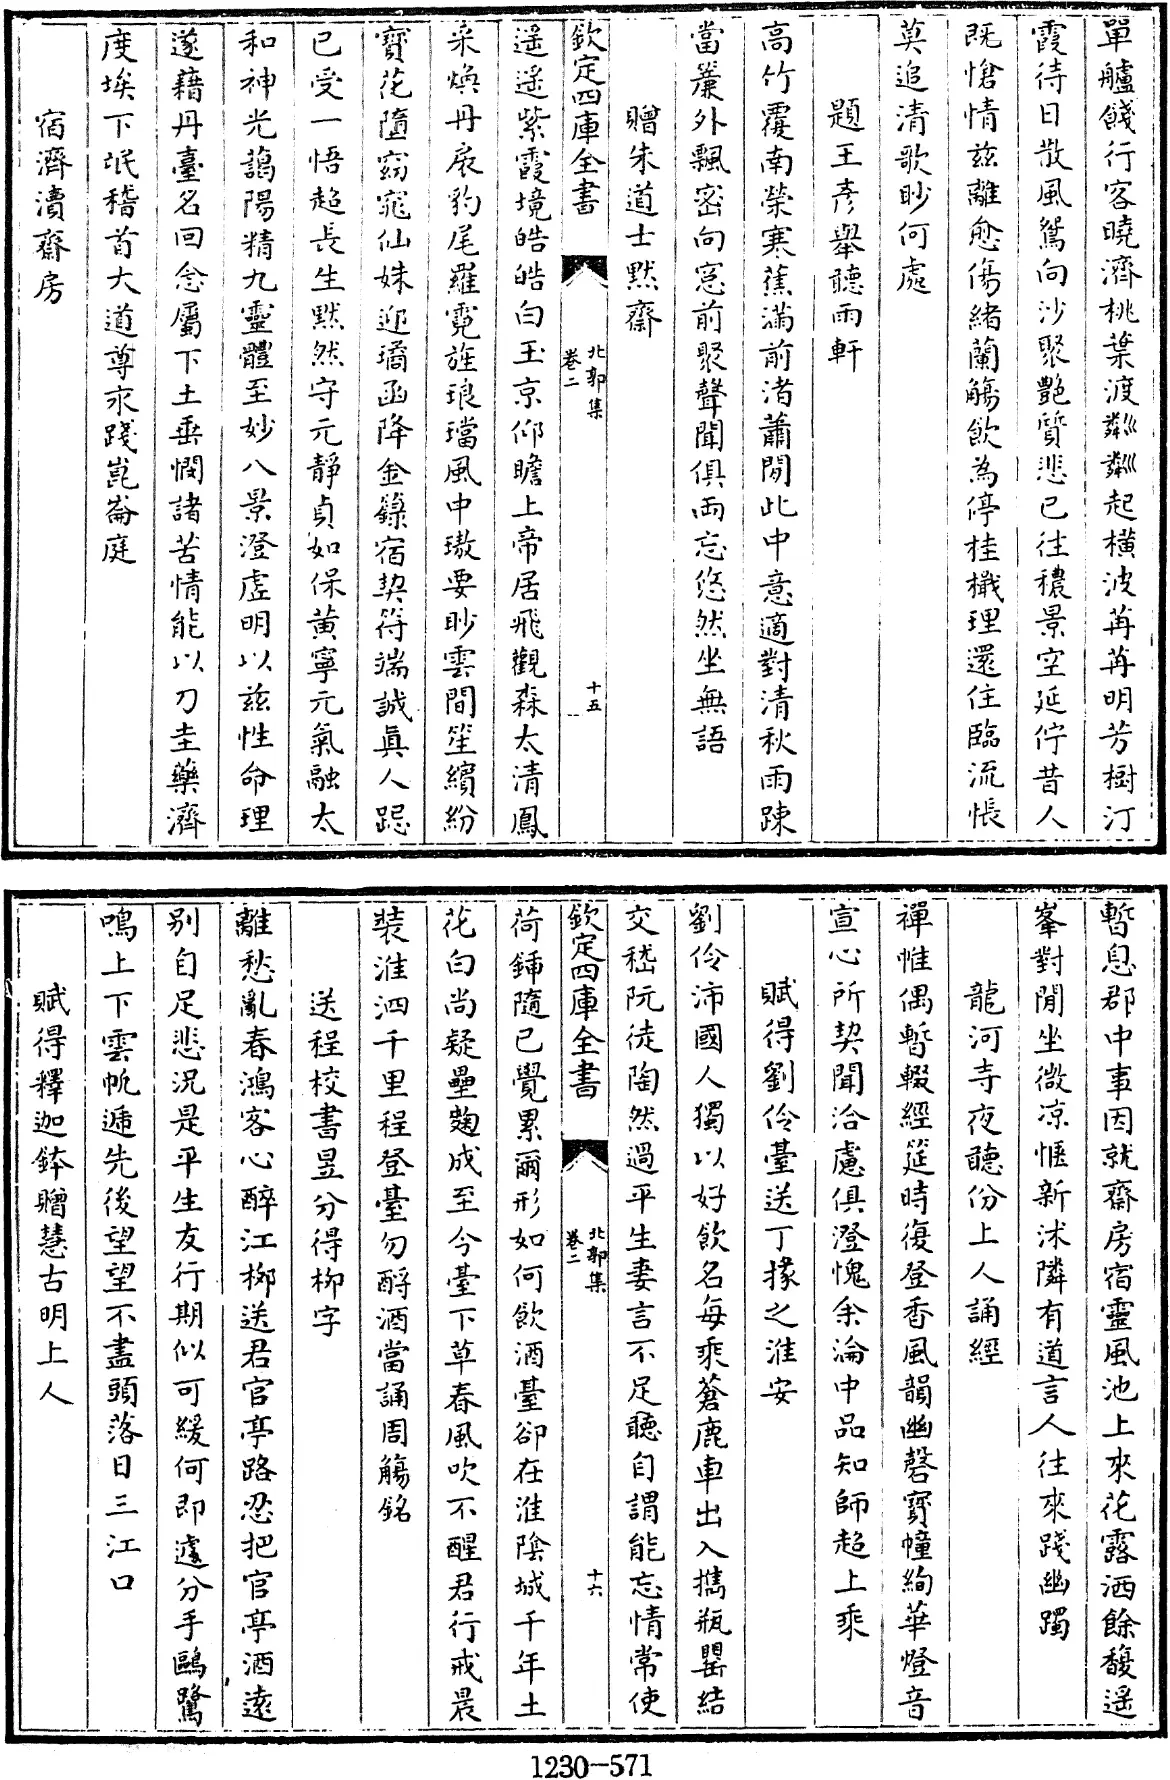 單艫餞行客曉濟桃葉渡粼粼起橫波苒苒明芳樹汀
霞待日散風鴛向沙聚艷質悲已往穠景空延佇昔人
既愴情兹離愈傷緒蘭觴飲為停桂檝理還住臨流悵
莫追清歌眇何處
題王彥舉聽雨軒
高竹覆南榮寒蕉滿前渚蕭閒此中意適對清秋雨踈
當簾外飄密向窓前聚聲聞俱兩忘悠然坐無語
贈朱道士默齋
欽定四庫全書
北郭集
卷二
十五
遥遥紫霞境皓皓白玉京仰瞻上帝居飛觀森太清鳳
采煥丹扆豹尾羅霓旌琅璫風中璈要眇雲間笙繽紛
寶花墮窈窕仙姝迎璚函降金籙宿契符端誠真人跽
已受一悟超長生默然守元靜貞如保黃寧元氣融太
和神光藹陽精九靈體至妙八景澄虛明以兹性命理
遂藉丹臺名回念屬下土垂憫諸苦情能以刀圭藥濟
度埃下氓稽首大道尊永踐崑崙庭
宿濟瀆齋房
暫息郡中事因就齋房宿靈風池上來花露洒餘馥遥
峯對閒坐微凉愜新沭隣有道言人往來踐幽躅
龍河寺夜聽份上人誦經
禪惟偶暫輟經筵時復登香風韻幽磬寶幢絢華燈音
宣心所契聞洽慮俱澄愧余淪中品知師超上乘
賦得劉伶臺送丁掾之淮安
劉伶沛國人獨以好飲名每乘蒼鹿車出入擕瓶罌結
交嵇阮徒陶然過平生妻言不足聽自謂能忘情常使
欽定四庫全書
北郭集
卷二
十六
荷鍤隨已覺累爾形如何飲酒臺卻在淮陰城千年土
花白尚疑壘麴成至今臺下草春風吹不醒君行戒晨
裝淮泗千里程登臺勿酹酒當誦周觴銘
送程校書昱分得柳字
離愁亂春鴻客心醉江柳送君官亭路忍把官亭酒遠
别自足悲况是平生友行期似可緩何即遽分手鷗鷺
鳴上下雲帆遞先後望望不盡頭落日三江口
賦得釋迦鉢贈慧古明上人
1230-571